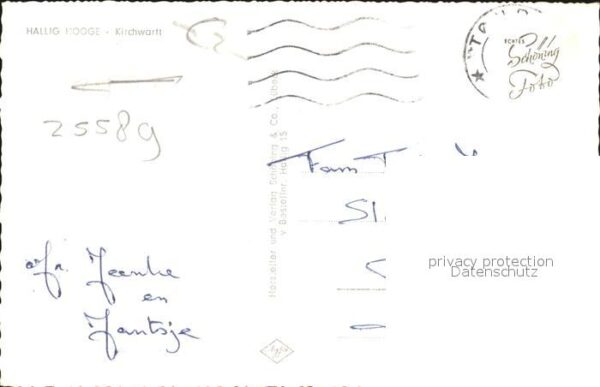 HALLIG HOOGE - Kirchwarft
25589
Hersteller und Verlag Schöning & Co., Lübeck
v Bestellnr. Hallig 15
ECHTES
Schöning
Foto
Fam
privacy protection
Datenschutz
en
Jantsje
Agfa